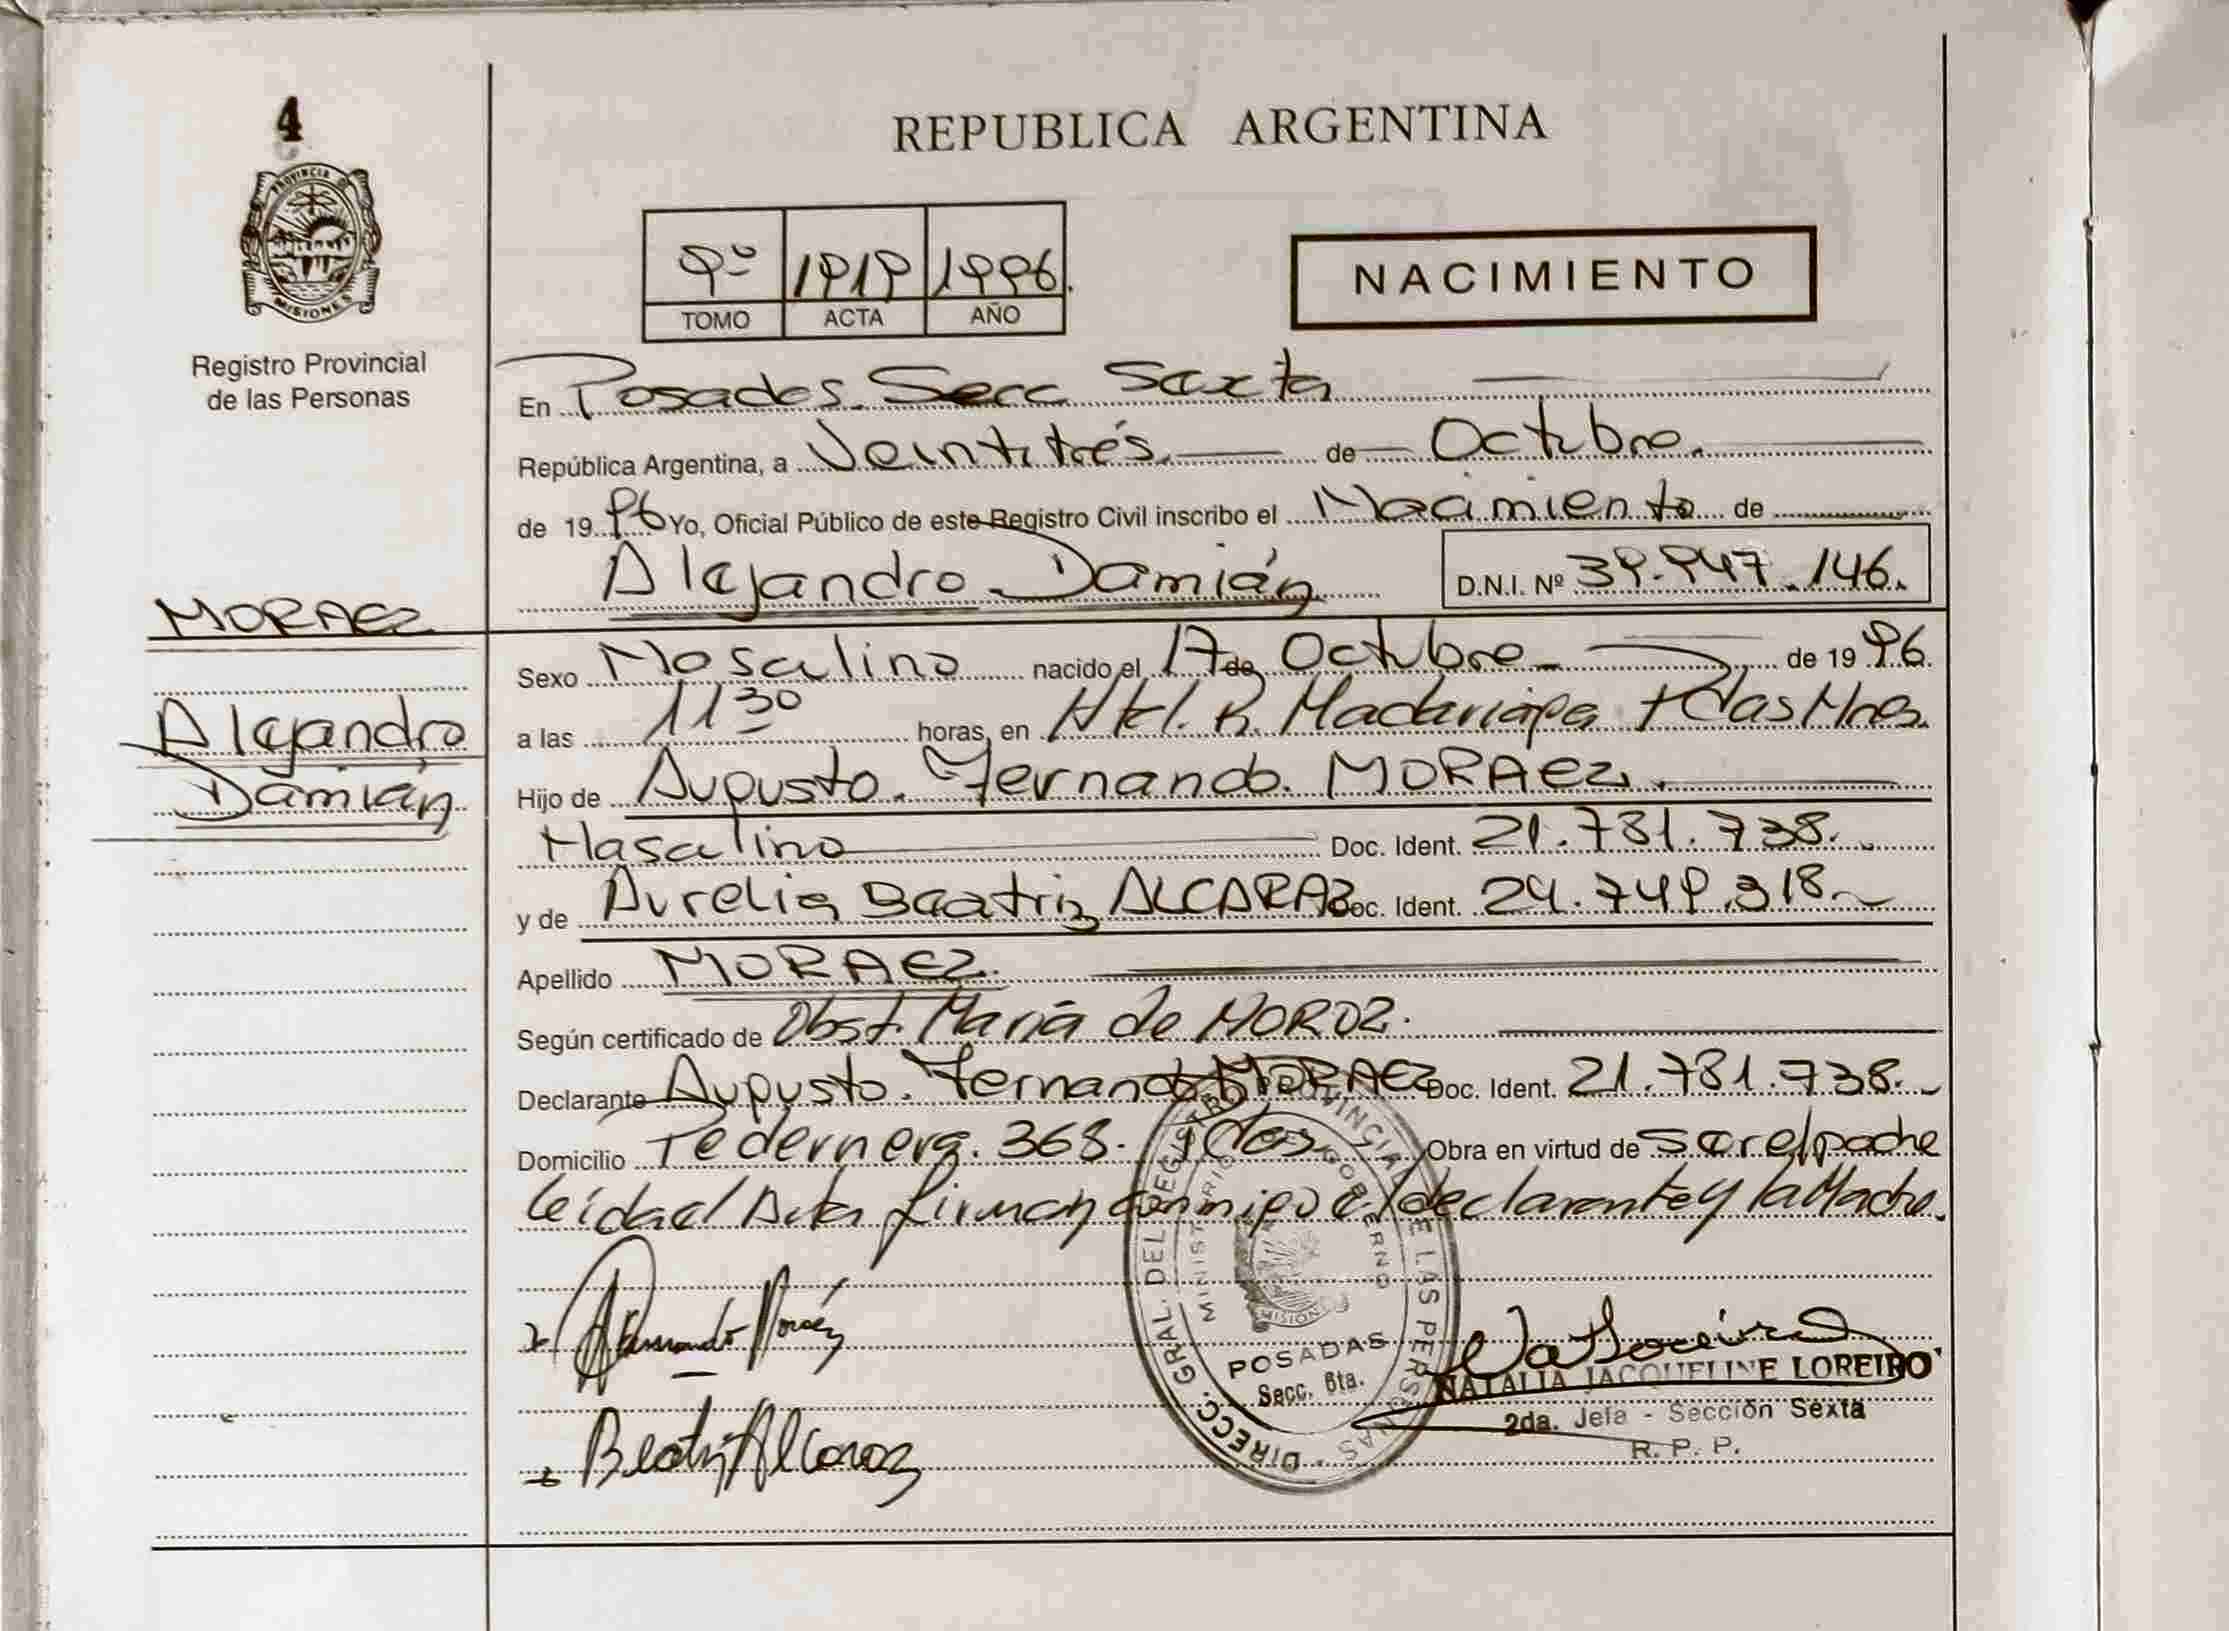 4
PROVINCIA D
MISIONES
Registro Provincial
de las Personas
REPUBLICA ARGENTINA
9º 1919 1996.
TOMO ACTA AÑO
NACIMIENTO
En Posadas. Secc Sexta
República Argentina, a Veintitrés. de Octubre.
de 1996 Yo, Oficial Público de este Registro Civil inscribo el Nacimiento de
Alejandro Damián D.N.I. Nº 39.947.146.
MORAEZ
Alejandro
Damián
Sexo Masculino nacido el 17 de Octubre de 1996.
a las 11 30 horas, en Htal. R. Madariaga Pdas Mnes.
Hijo de Augusto. Fernando. MORAEZ.
Masculino Doc. Ident. 21.781.738.
y de Aurelia Beatriz ALCARAZ Doc. Ident. 24.749.318.
Apellido MORAEZ.
Según certificado de Obst. María de MOROZ.
Declarante Augusto. Fernando MORAEZ Doc. Ident. 21.781.738.
Domicilio Pedernera. 368. Pdas Obra en virtud de ser el padre
leída el Acta firman conmigo el declarante y la Madre.
Fernando Moraez
Beatriz Alcaraz
DIRECC. GRAL. DEL REGISTRO PROVINCIAL DE LAS PERSONAS
MINISTERIO GOBIERNO
MISIONES
POSADAS
Secc. 6ta.
NATALIA JACQUELINE LOREIRO
2da. Jefa - Sección Sexta
R. P. P.